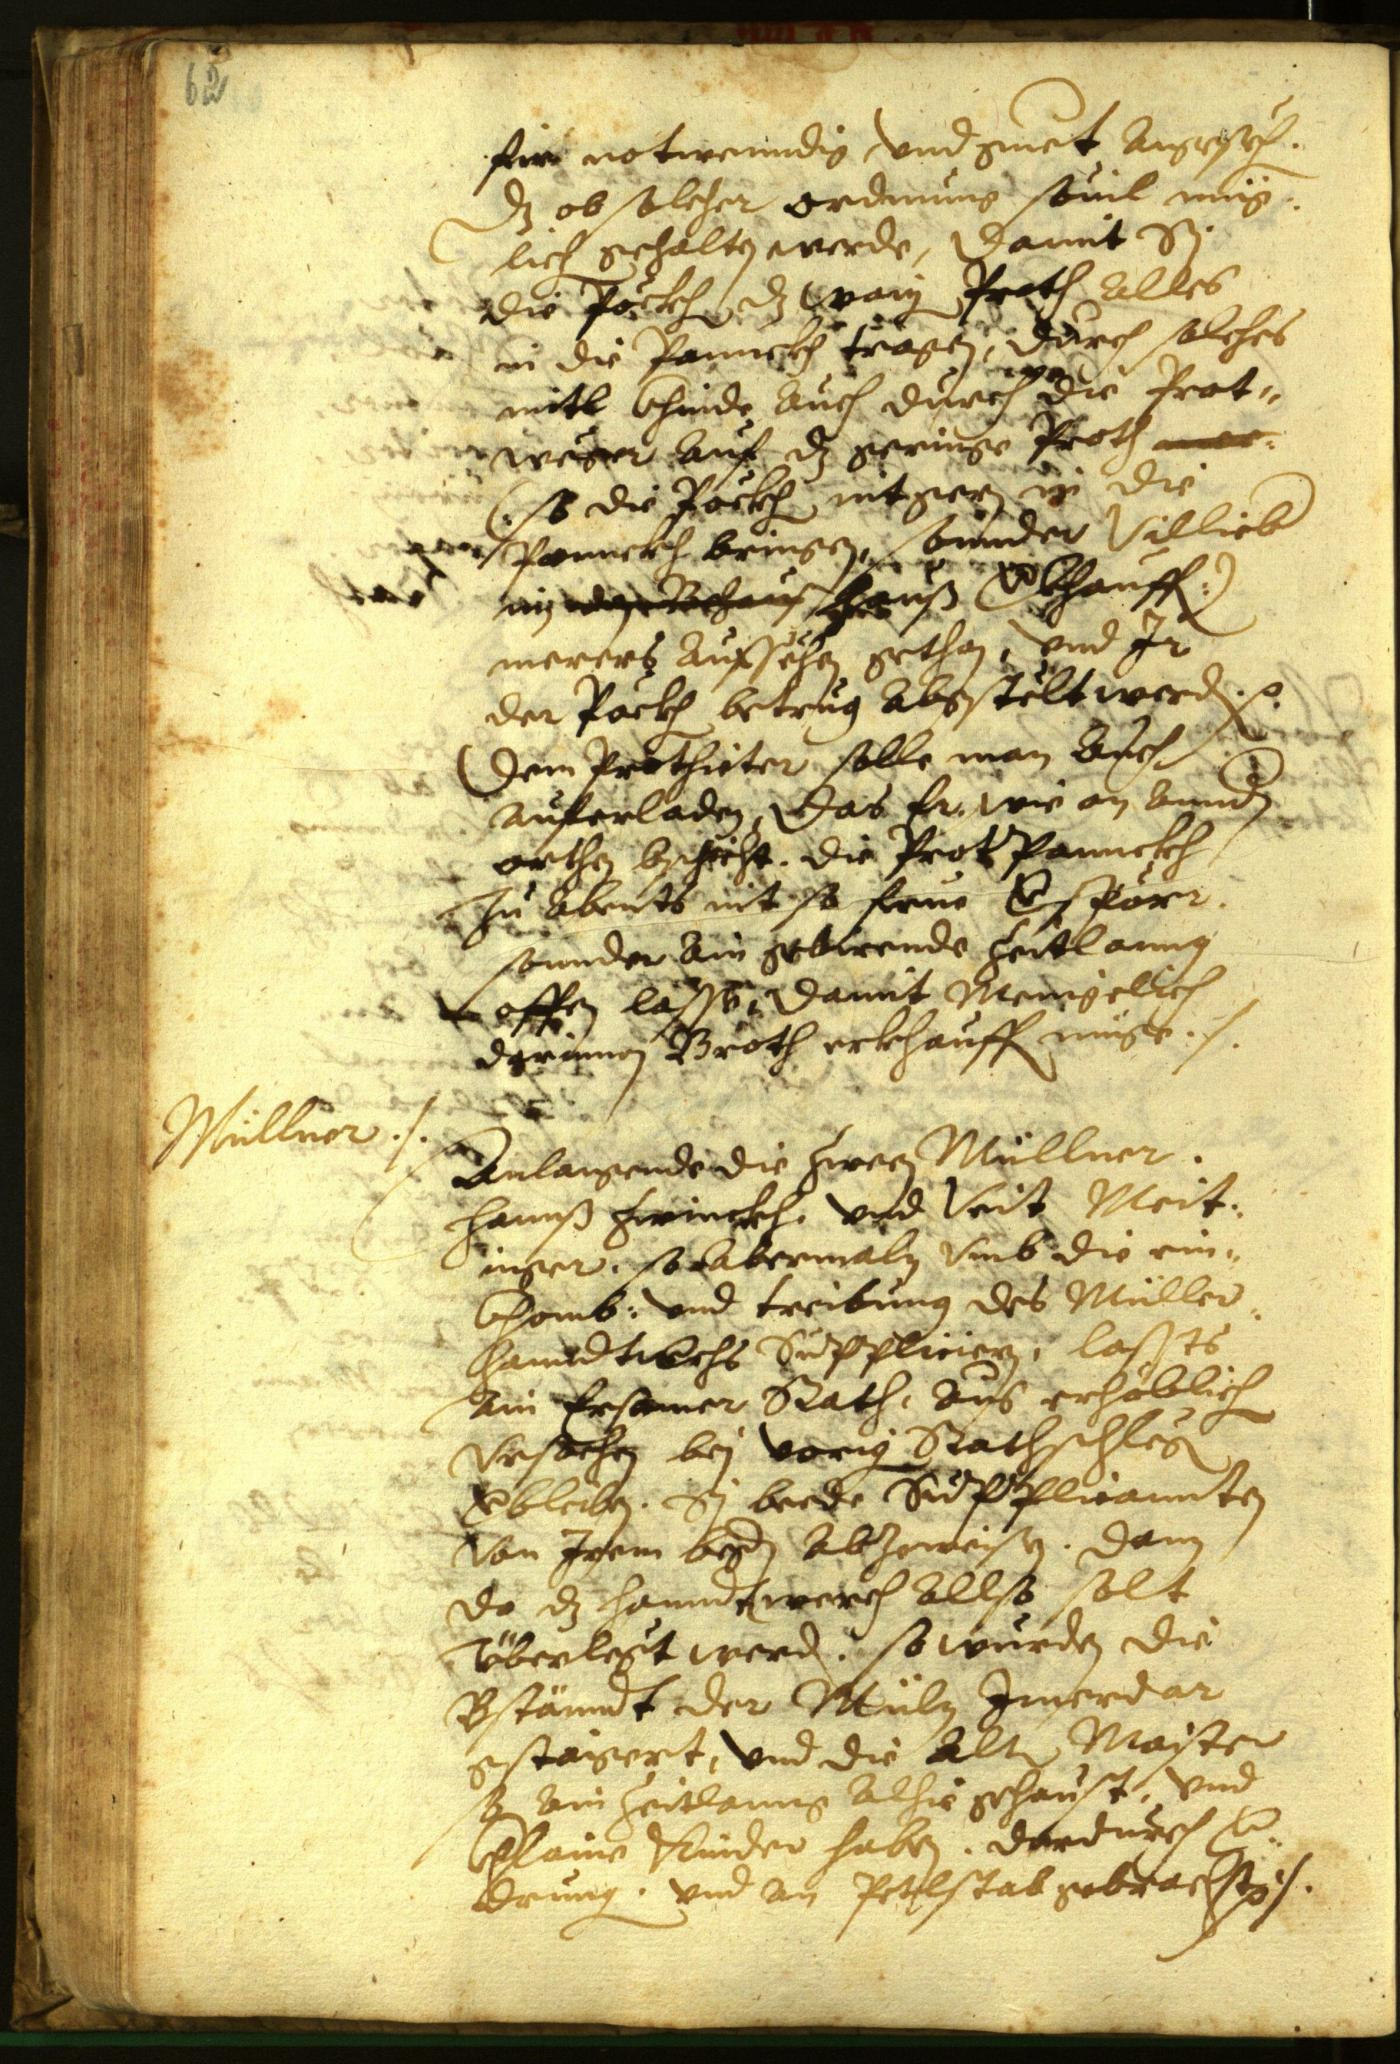 62
für notwenndig vnd guet angesech.
dz ob solcher ordnung souil müg.
lich gehalten werde, damit Sy
die Pöckh dz waiz Proth alles
in die Pannckh tragen, durch solches
mitl khinde auch durch die Prot„
weger auf dz geringe Proth
(: so die Pöckh nit gern in die
Pannckh bringen, sonnder villieb
im hauß verkhauff :)
merers aufsehen gethon, vnd Ir
der Pöckh betrug abgestelt werd.
Dem Prothieter solle man auch
auferladen, Das Er, wie an annd
orthen beschicht. die Prot Pannckh
Zu abents nit so frue verspörr.
sonnder ain gebirende Zeitlanng
offen lasse, damit Menigelich
darinnen Broth erkhauff müge ./.
Müllner ./.
Anlangende die Zween Müllner.
Hannß Zwinckh. vnd Veit Meit.
inger. so abermaln vmb die ein„
khomb: vnd treibung des Müller
hanndtwerchs Suppliciern, lassts
ain Ersamer Rath, aus erhöblich
vrsachen bej vorig Rathschleg
verbleiben. Sy beede Supplicannten
von Irem begern abzeweisen. dann
da dz hanndtwerch allso solt
überlegt werd. so wurden die
Bständt der Müln Imerdar
gestaigert, vnd die alten Maister
so ain Zeitlanng alhie gehaust, vnd
khlaine Kinder haben. dardurch ver„
drung. vnd an Petlstab gebracht ./.